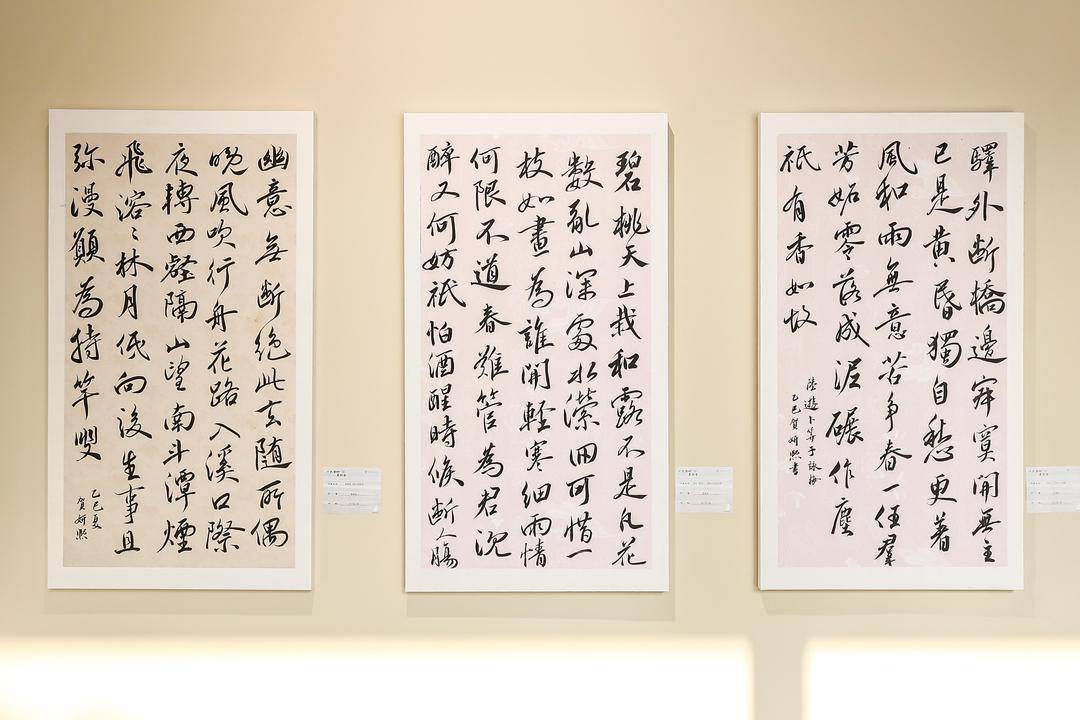 幽意無断绝此去随所偶
晚風吹行舟花路入溪口際
夜轉西壑隔山望南斗潭煙
飛溶〻林月低向後生事且
弥漫願為持竿叟
乙巳夏
賀妍熙
碧桃天上栽和露不是凡花
数亂山深處水縈回可惜一
枝如畫為誰開輕寒細雨情
何限不道春難管為君沉
醉又何妨祇怕酒醒時候断人腸
驛外断橋邊寂寞開無主
已是黄昏獨自愁更著
風和雨無意苦争春一任羣
芳妬零落成泥碾作塵
祇有香如故
陸遊卜算子詠梅
乙巳賀妍熙書